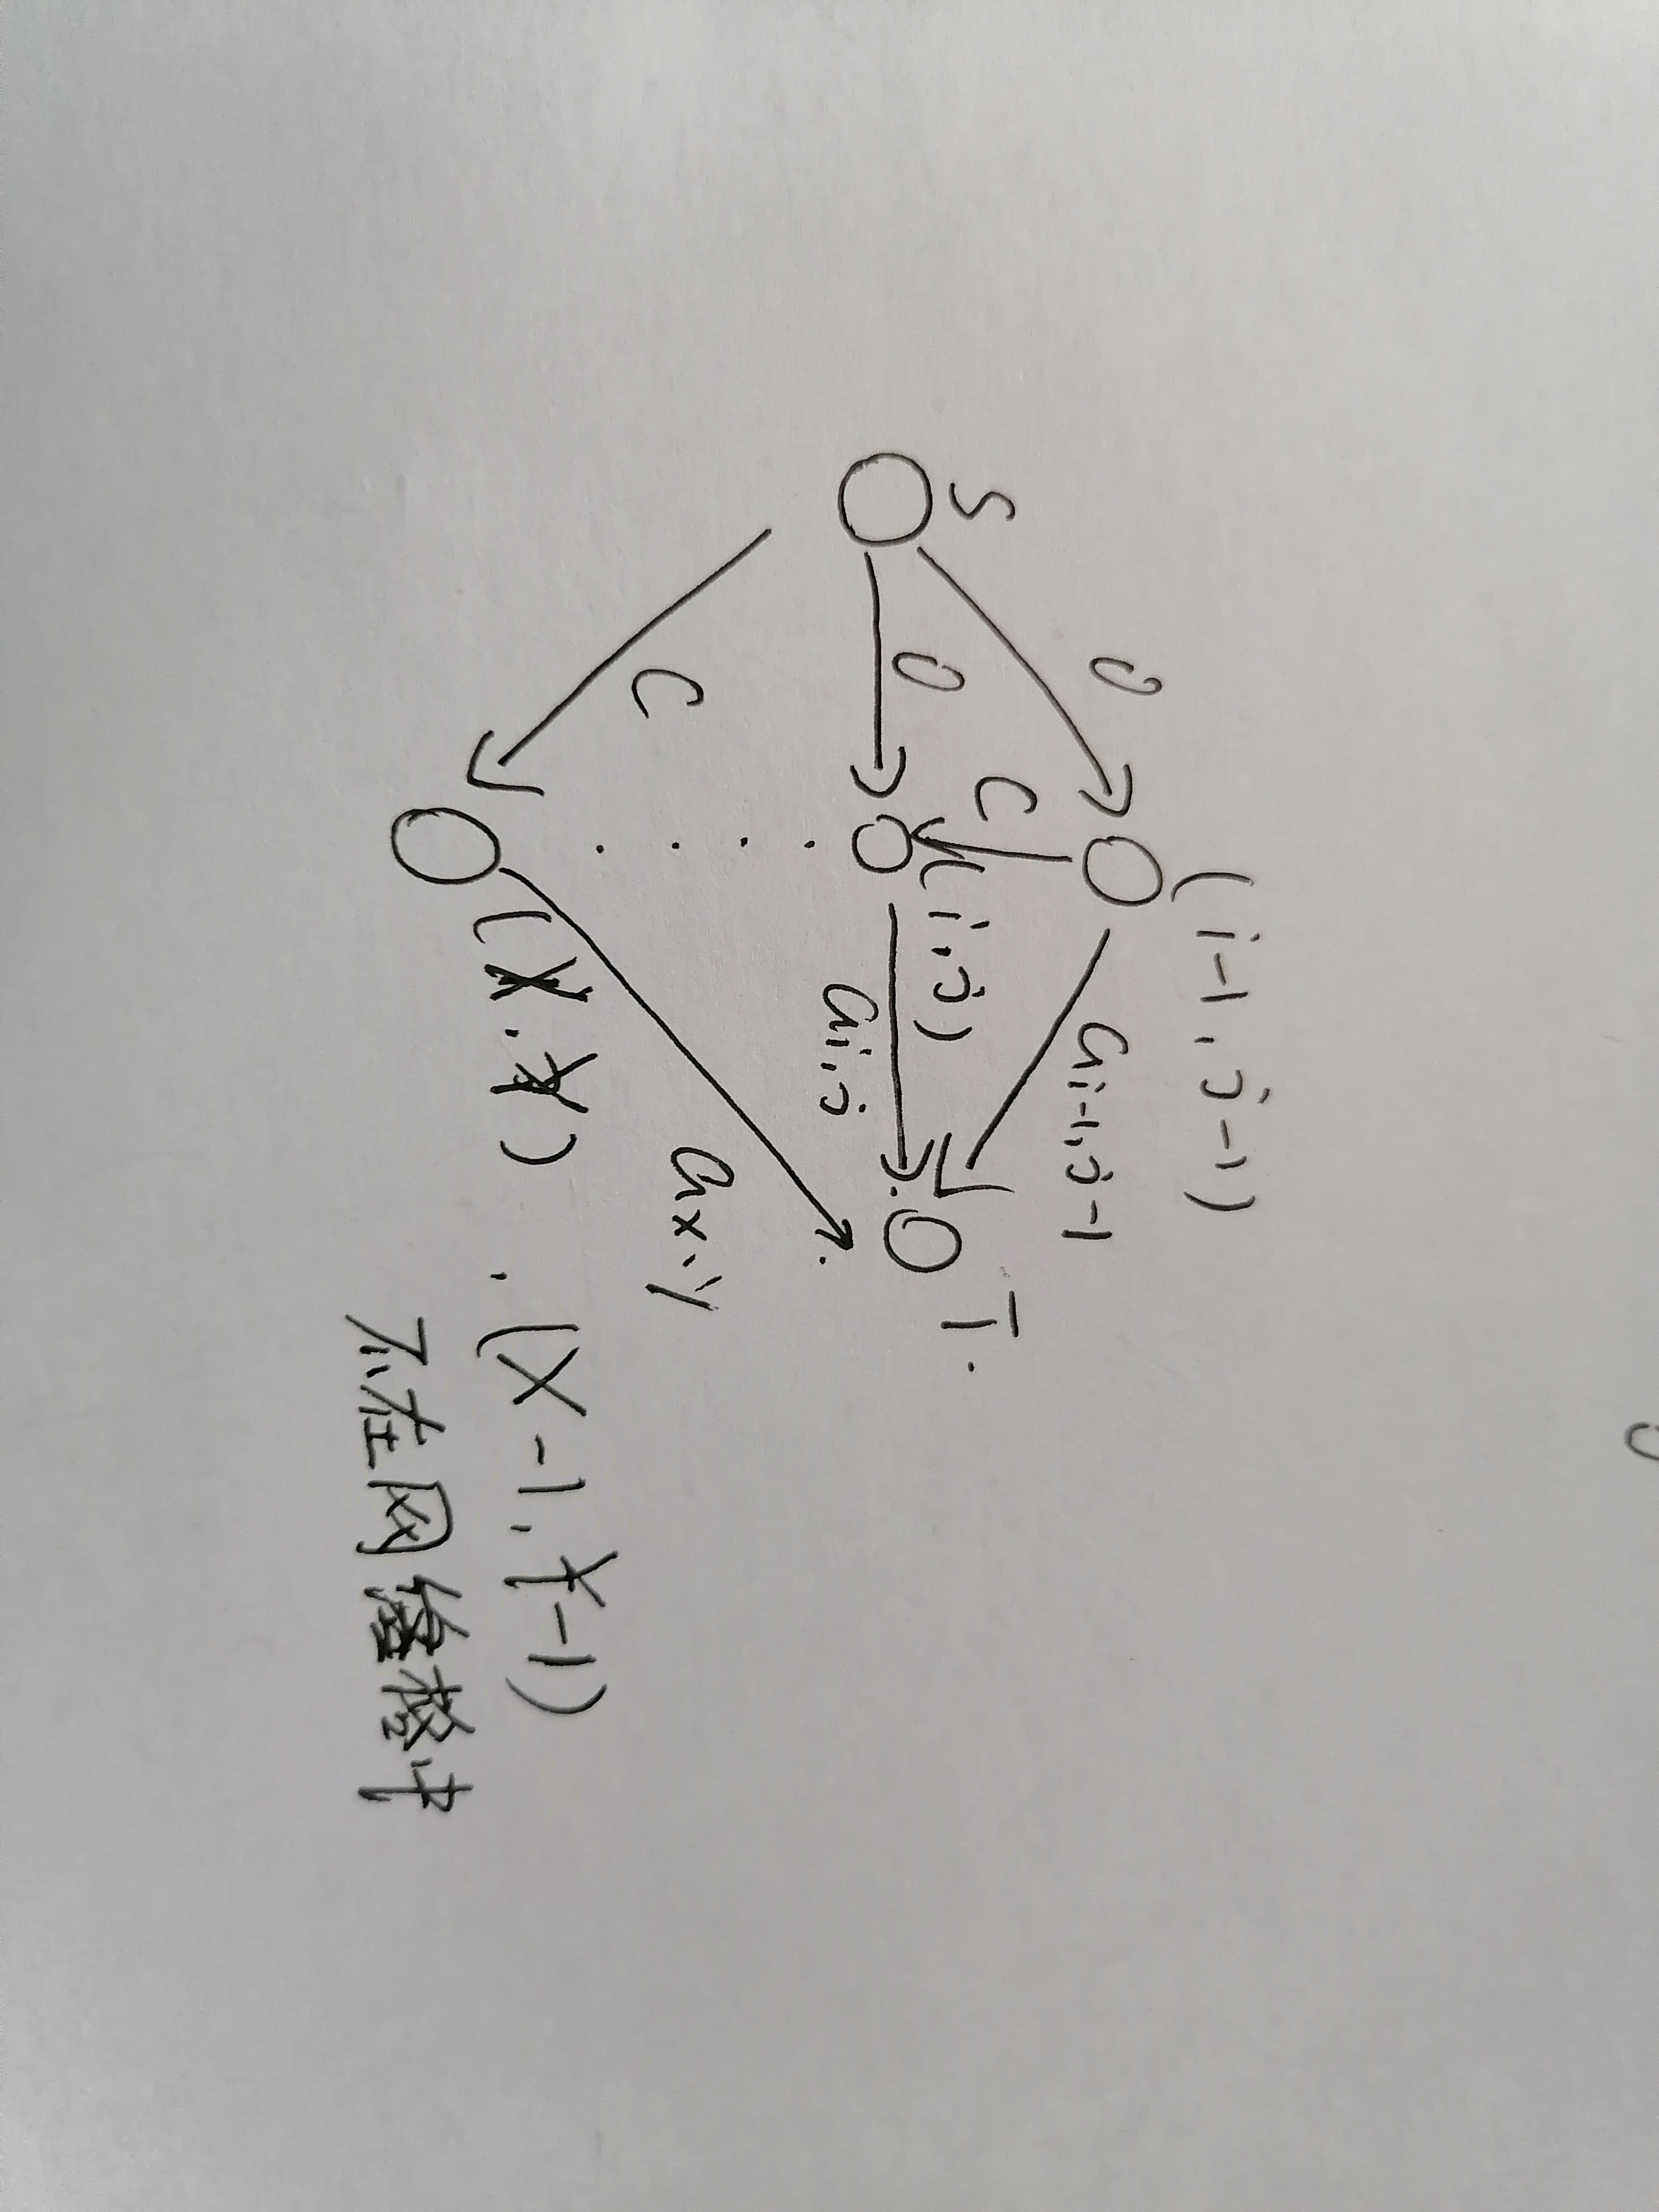 (i-1, j-1)
0
a i-1, j-1
S
C
(i, j)
T
0
a i, j
C
a x, y
(X, Y) , (X-1, Y-1)
不在网格中